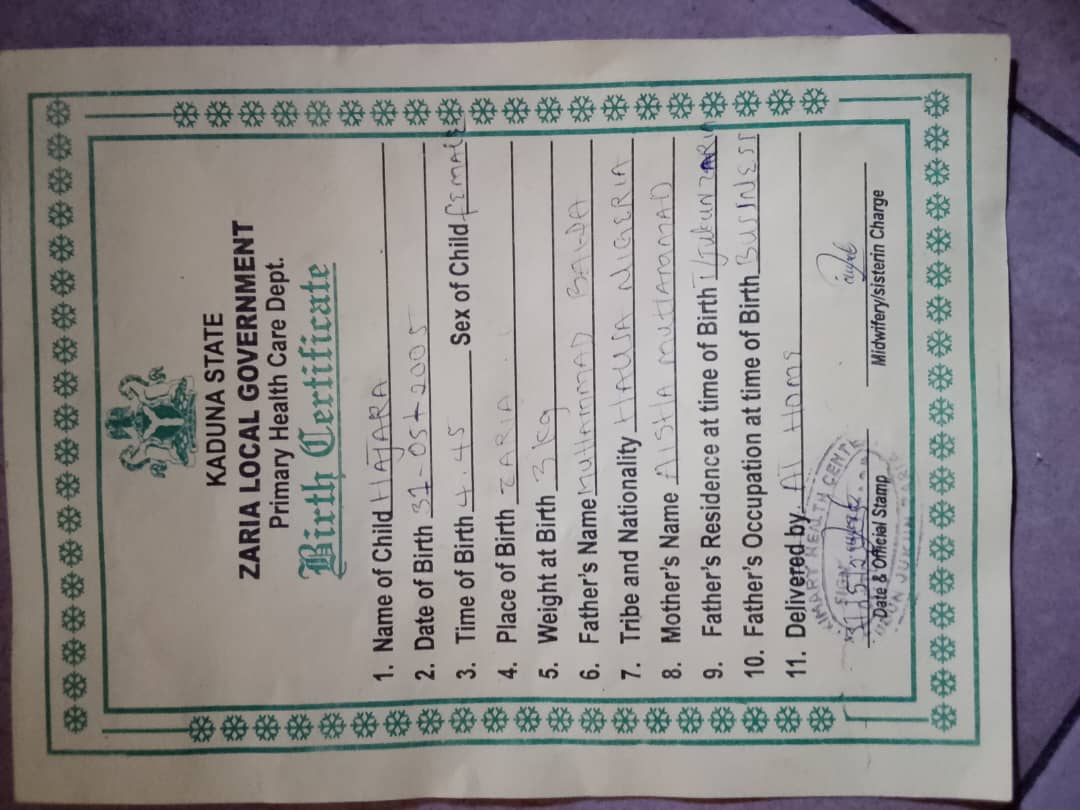 KADUNA STATE
ZARIA LOCAL GOVERNMENT
Primary Health Care Dept.
Birth Certificate
1. Name of Child HAJARA
2. Date of Birth 31-05-2005
3. Time of Birth 4.45 Sex of Child female
4. Place of Birth ZARIA
5. Weight at Birth 3kg
6. Father's Name MUHAMMAD
7. Tribe and Nationality HAUSA NIGERIA
8. Mother's Name AISHA MUHAMMAD
9. Father's Residence at time of Birth T/Jukun ZARIA
10. Father's Occupation at time of Birth BUSINESS
11. Delivered by AT HOME
PRIMARY HEALTH CENTR
SIGN
Date & Official Stamp
Midwifery/sisterin Charge
JUKUN ZARIA